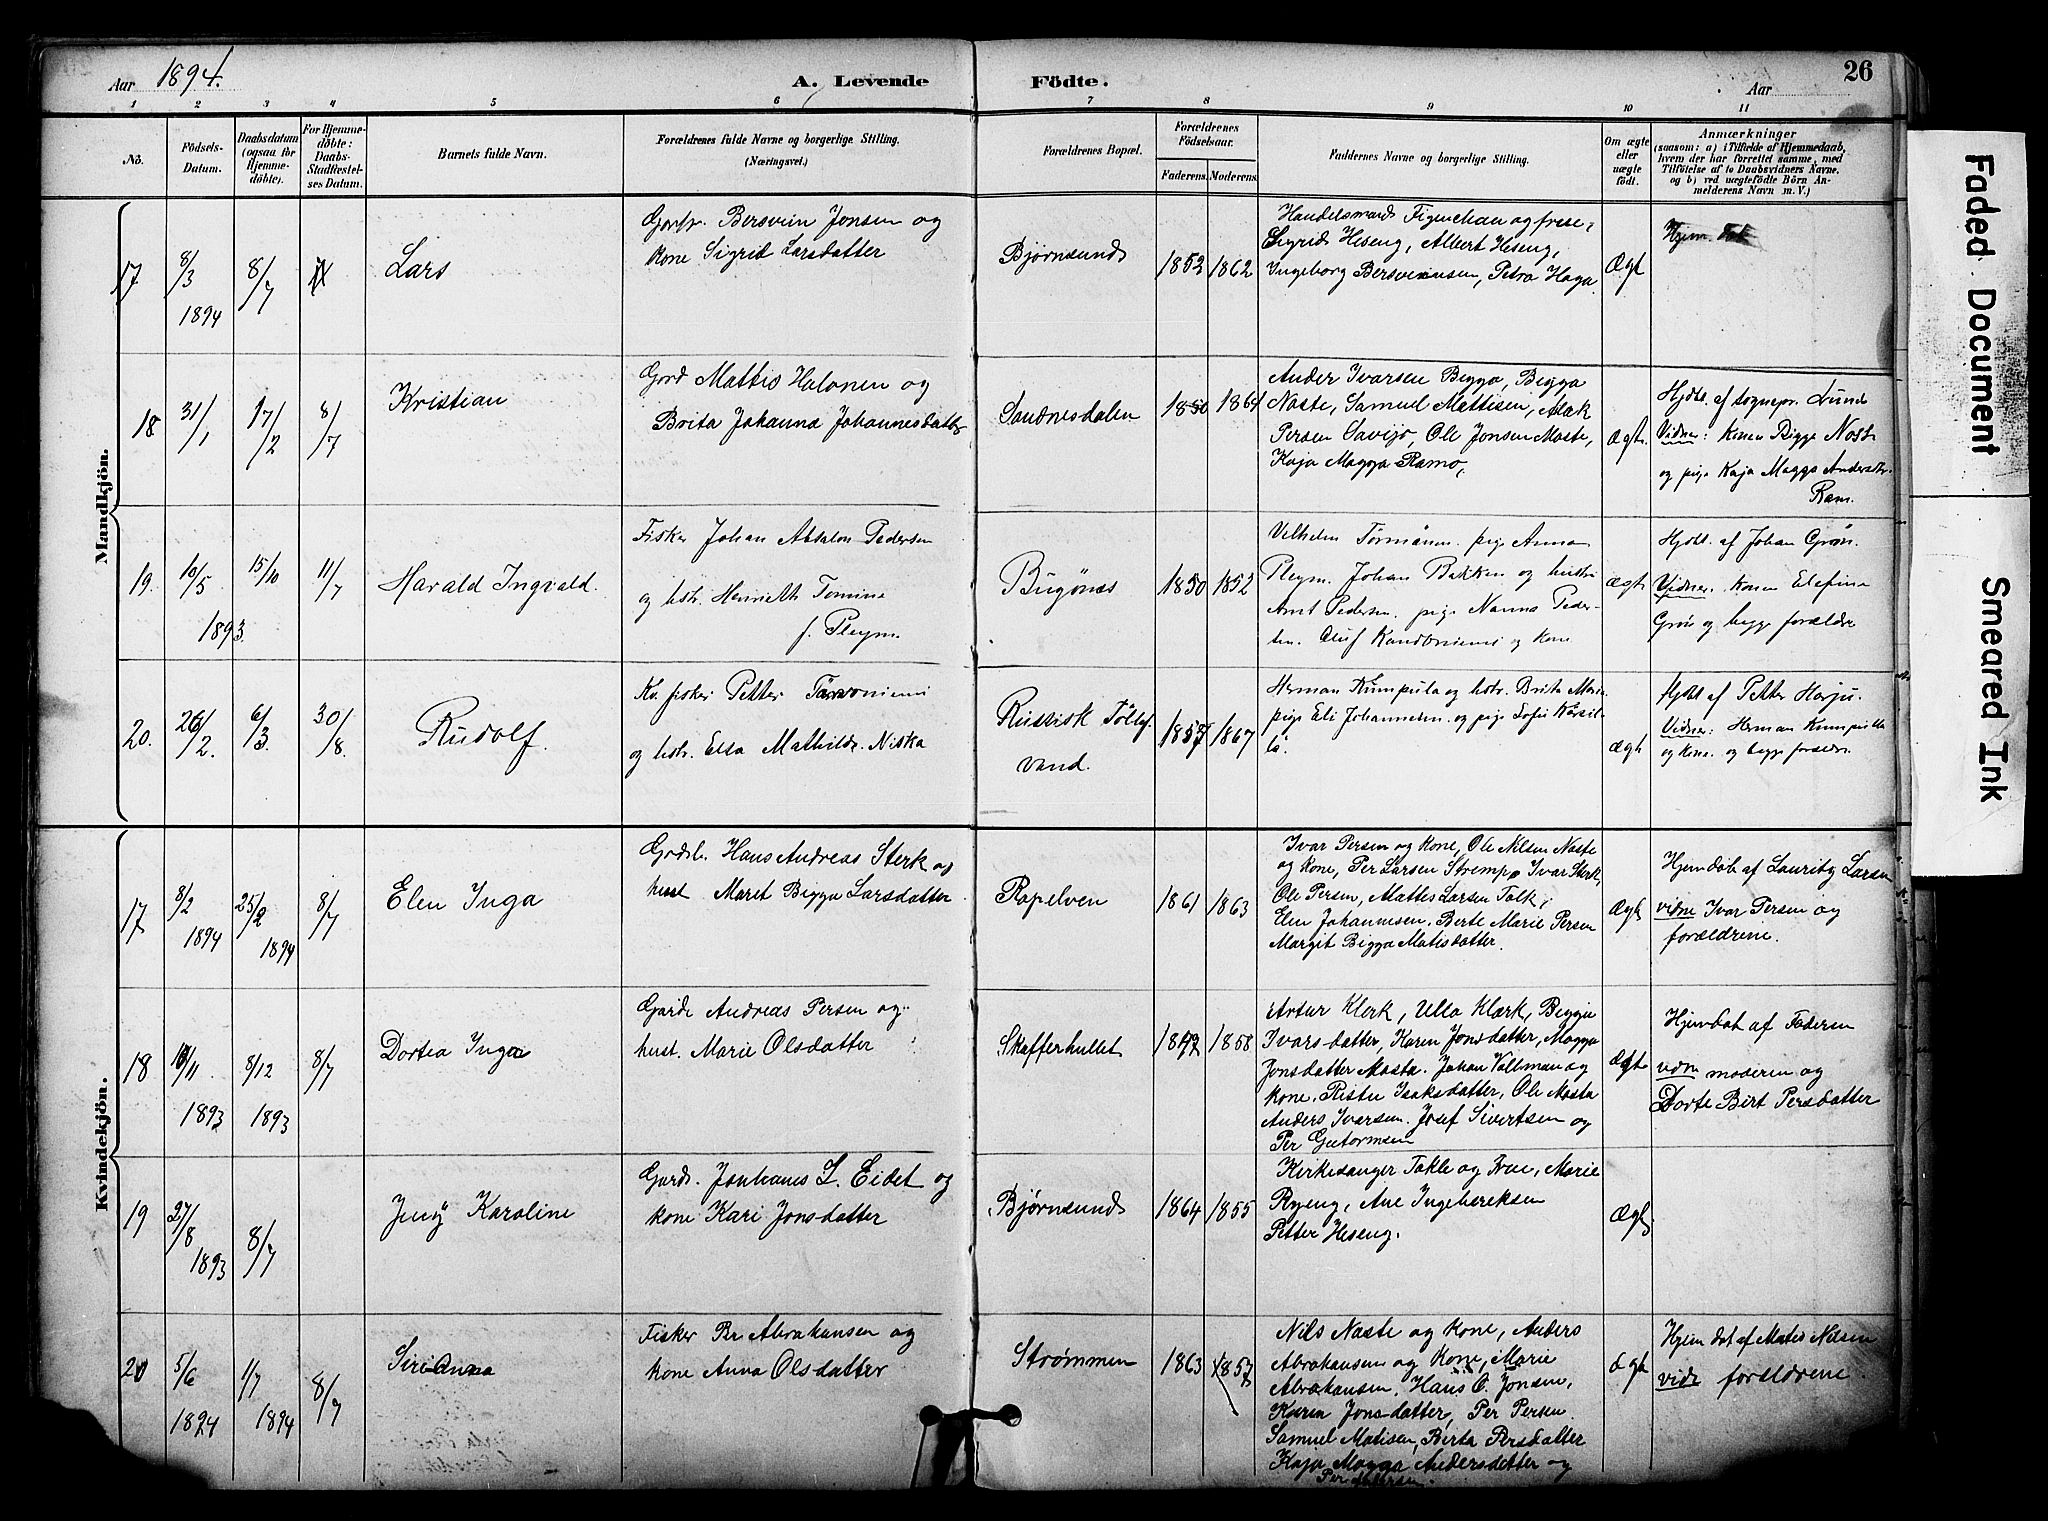 Aar 1894.
A. Levende Födte.
Aar
26
1 2 3 4 5 6 7 8 9 10 11
No.
Födsels-Datum.
Daabsdatum (ogsaa for Hjemme-döbte).
For Hjemme-döbte: Daabs-Stadfæstel-ses Datum.
Barnets fulde Navn.
Forældrenes fulde Navne og borgerlige Stilling. (Næringsvei.)
Forældrenes Bopæl.
Forældrenes Födselsaar.
Faderens. Moderens.
Faddernes Navne og borgerlige Stilling.
Om ægte eller uægte födt.
Anmærkninger
(saasom: a) i Tilfælde af Hjemmedaab,
hvem der har forrettet samme, med
Tilföielse af to Daabsvidners Navne,
og b) ved uægtefödte Börn An-
melderens Navn m. V.)
Mandkjön.
17 8/3 1894 8/7 Lars
Bersvein Jonsen og
kone Sigrid Larsdatter
Bjørnsund 1852 1862
Handelsmand Figenchau og
Sigrid Heseng, Albert Heseng,
Ingeborg Bersveinsen, Petra Haga
Ægt
Hjem
18 31/1 17/2 8/7 Kristian
Gård Mattis Halonen og
Brita Johanna Johannesdatter
Sandnesdalen 1850 1864
Ander Ivarsen Bigga, Bigga
Naste, Samuel Mattisen, Aslak
Persen Savijo, Ole Jonsen Maste,
Kaja Magga Ramo,
Ægt.
Hjdbt. af sognepr. Lund
Vidner: Konen Bigge Noste
og pige Kaja Magga Andersdtr.
Ram.
19. 10/5 1893. 15/10 11/7 Harald Ingvald.
Fisker Johan Absalon Pedersen
og hstr. Henrieth Tomine
f. Pleym.
Bugönæs 1850 1852
Vilhelm Törmänen. pige Anna
Pleym. Johan Bakken og hustru
Arnt Pedersen, pige Nanna Peder-
sen. Oluf og kone
ægte
Hjdbt. af Johan Grön.
Vidner. Konen Elefina
Grön og begge forældre
20. 26/2. 6/3. 30/8. Rudolf.
Kv. fisker Petter Törvoniemi
og hstr. Elsa Mathilde Niska
Russisk Jöbl-
vand.
1857 1867
Herman Kumpula og hstr. Brita Maria
pige Eli Johannesen og pige Sofie Karsil-
la.
ægte
Hjdbt af Petter Harju.
Vidner: Herman Kumpula
og kone. og begge forældre.
Kvindekjön.
17 8/2 1894 25/2 1894 8/7 Elen Inga
Grdsb. Hans Andreas Sterk og
hust Maret Bigga Larsdatter
Ropelven 1861 1863
Ivar Persen og kone, Ole Nilsen Naste
og kone, Per Larsen Strempe Ivar Sterk,
Ole Persen, Mattis Larsen Tolk,
Elen Johannesen, Berte Marie Persen
Margit Bigga Matisdatter.
Ægte
Hjemdøb af Lauritz Larsen
vidne Ivar Persen og
forældrene.
18 11/11 1893 8/12 1893 8/7 Dortea Inga
Gårdb Andreas Persen og
hust. Marie Olsdatter
Skafferhullet 1849 1858
Artur Klerk, Ulla Klærk, Bigga
Ivarsdatter, Karen Jonsdatter, Magga
Jonsdatter Masta. Johan Vallman og
kone. Ristu Isaksdatter, Ole Masta
Anders Ivarsen. Josef Sivertsen og
Per Guttormsen
Ægte
Hjemdøt af Faderen
vidne moderen og
Dorte Birt Persdatter
19 27/8 1893 8/7 Jenny Karoline
Gårdb. Jonhanes L. Eidet og
kone Kari Jonsdatter
Bjørnsund 1864 1855
Kirkesanger Takle og Frue, Marie
Ryeng, Ane Ingebreksen
Petter Heseng.
Ægte
20 5/6 1894 1/7 1894 8/7 Siri Anna
Fisker Br. Abrahamsen og
kone Anna Olsdatter
Strømmen 1863 1857
Nils Naste og kone, Anders
Abrahamsen og kone, Marie
Abrahamsen, Hans O. Jonsen,
Karen Jonsdatter, Per Persen
Samuel Matisen, Berta Persdatter
Kaja Magga Andersdatter og
Per
Ægte
Hjem døt af Matis Nilsen
vidr forældrene.
Faded Document
Smeared Ink